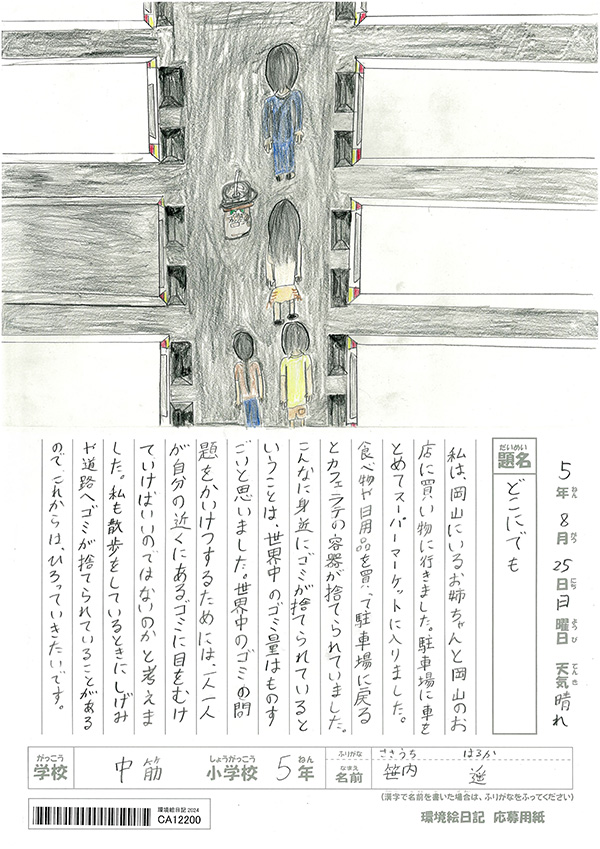 5年 8月 25日 日曜日 天気 晴れ
ねん がつ にち ようび てんき
だいめい
題名
どこにでも
私は、岡山にいるお姉ちゃんと岡山のお
店に買い物に行きました。駐車場に車を
とめてスーパーマーケットに入りました。
食べ物や日用品を買って駐車場に戻る
とカフェラテの容器が捨てられていました。
こんなに身近に、ゴミが捨てられていると
いうことは、世界中のゴミ量はものす
ごいと思いました。世界中のゴミの問
題をかいけつするためには、一人一人
が自分の近くにあるゴミに目をむけ
ていけばいいのではないのかと考えま
した。私も散歩をしているときにしげみ
や道路へゴミが捨てられていることがある
ので、これからは、ひろっていきたいです。
がっこう しょうがっこう ねん ふりがな ささうち はるか
学校 中筋 小学校 5年 なまえ 名前 笹内 遥
(漢字で名前を書いた場合は、ふりがなをふってください)
環境絵日記 2024
CA12200
環境絵日記 応募用紙